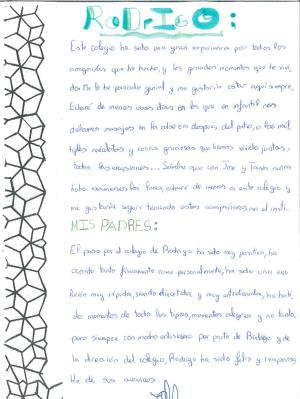 RoDrIGO:
Este colegio ha sido una gran experiencia por todos los
amigos/as que he hecho, y los grandes momentos que he vivi-
do. Me lo he pasado genial y me gustaría estar aquí siempre.
Echaré de menos esos días en los que en infantil nos
dábamos masajes en la cabeza después del patio, o las múl-
tiples anécdotas y cosas graciosas que hemos vivido juntos,
todas las excursiones,... Sabéis que con Jose y
hubo exámenes los lunes, echaré de menos a este colegio y
me gustaría seguir teniendo estos compañeros en el insti.
MIS PADRES:
El paso por el colegio de Rodrigo ha sido muy positivo, ha
crecido tanto físicamente como personalmente, ha sido una evo-
lución muy rápida, siendo divertida y muy estudiada, ha habi-
do momentos de todo los tipos, momentos alegres y no tanto,
pero siempre con mucho entusiasmo por parte de Rodrigo y de
la dirección del colegio, Rodrigo ha sido feliz y responsa-
ble de sus avances.